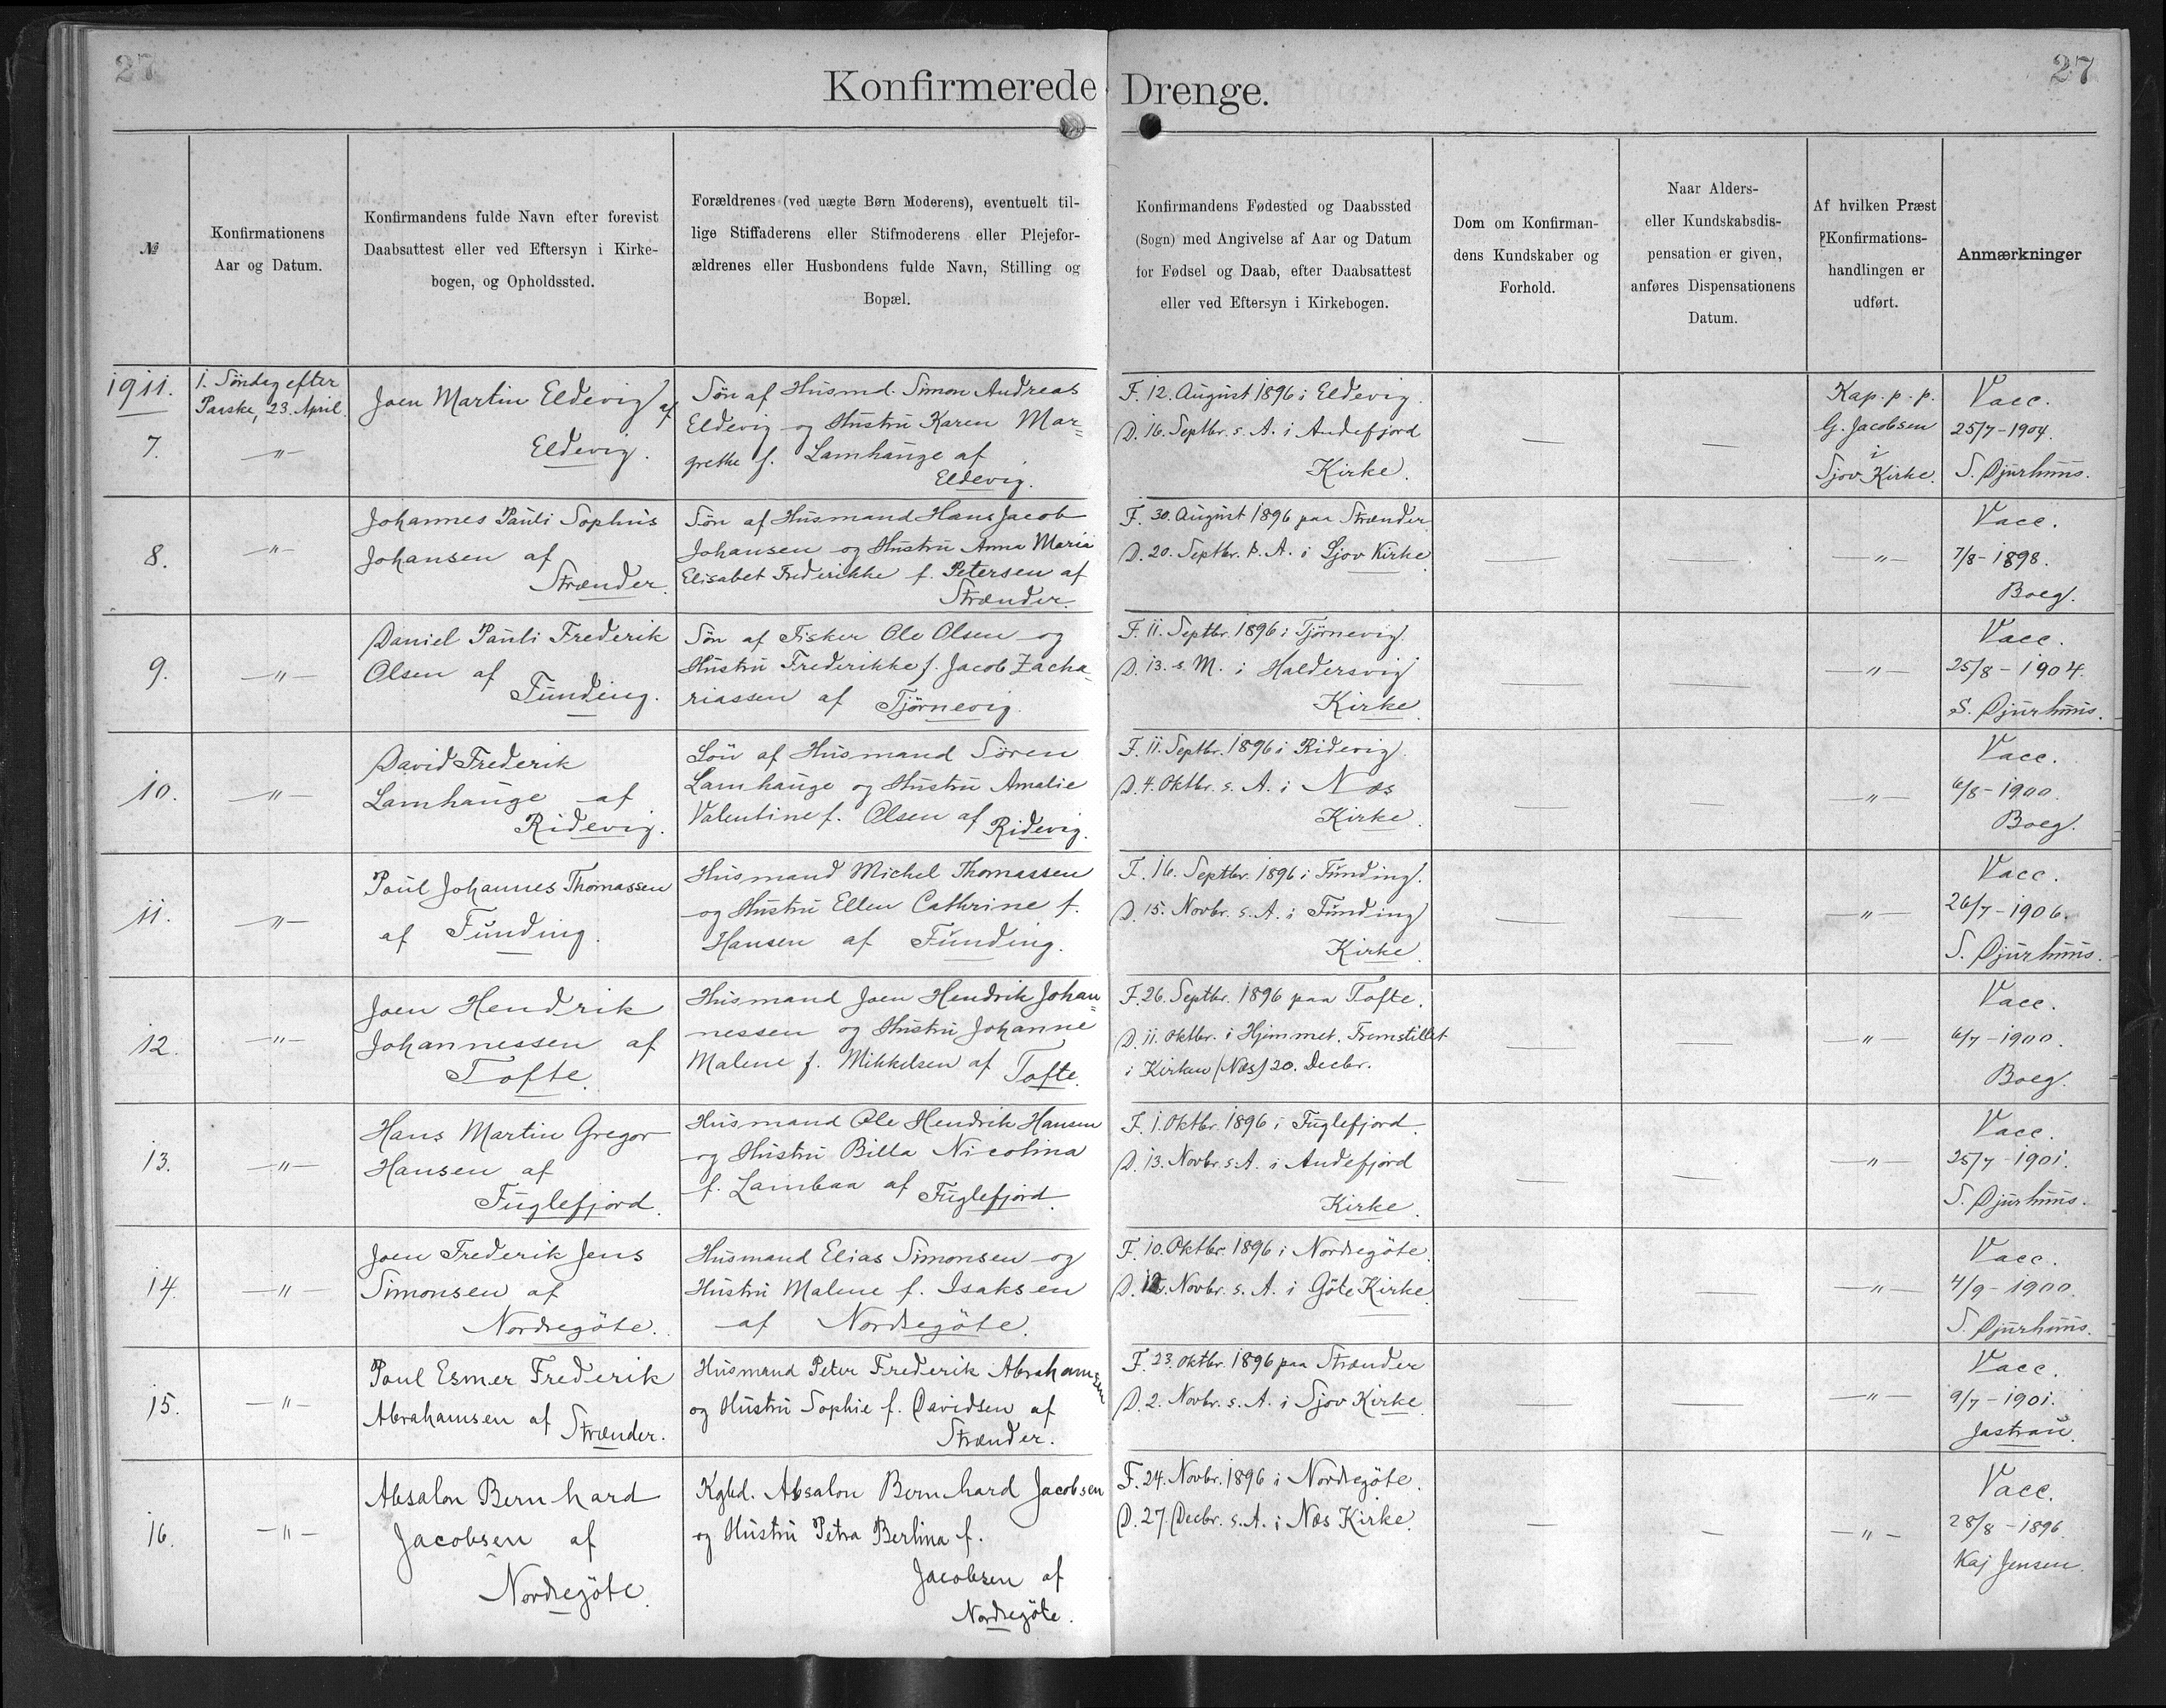 27
27
Konfirmerede Drenge.
№
Konfirmationens
Aar og Datum.
Konfirmandens fulde Navn efter forevist
Daabsattest eller ved Eftersyn i Kirke-
bogen, og Opholdssted.
Forældrenes (ved uægte Børn Moderens), eventuelt til-
lige Stiffaderens eller Stifmoderens eller Plejefor-
ældrenes eller Husbondens fulde Navn, Stilling og
Bopæl.
Konfirmandens Fødested og Daabssted
(Sogn) med Angivelse af Aar og Datum
for Fødsel og Daab, efter Daabsattest
eller ved Eftersyn i Kirkebogen.
Dom om Konfirman-
dens Kundskaber og
Forhold.
Naar Alders-
eller Kundskabsdis-
pensation er given,
anføres Dispensationens
Datum.
Af hvilken Præst
Konfirmations-
handlingen er
udført.
Anmærkninger
1911.
7.
1. Søndag efter
Paaske, 23. April.
—"—
Joen Martin Eldevig af
Eldevig.
Søn af Husmd. Simon Andreas
Eldevig og Hustru Karen Mar=
grethe f. Lamhauge af
Eldevig.
F. 12. August 1896 i Eldevig.
D. 16. Septbr. s. A. i Andefjord
Kirke.
—
—
Kap. p. p.
G. Jacobsen
i
Sjov Kirke.
Vacc.
25/7-1904.
S. Djurhuus.
8.
—"—
Johannes Pauli Sophus
Johansen af
Strænder.
Søn af Husmand Hans Jacob
Johansen og Hustru Anna Maria
Elisabet Frederikke f. Petersen af
Strænder.
F. 30. August 1896 paa Strænder
D. 20. Septbr. s. A. i Sjov Kirke
—
—
—"—
Vacc.
7/8-1898.
Boeg.
9.
—"—
Daniel Pauli Frederik
Olsen af
Funding.
Søn af Fisker Ole Olsen og
Hustru Frederikke f. Jacob Zacha-
riassen af Tjørnevig.
F. 11. Septbr. 1896 i Tjørnevig.
D. 13. s. M. i Haldersvig
Kirke.
—
—
—"—
Vacc.
25/8-1904.
S. Djurhuus.
10.
—"—
David Frederik
Lamhauge af
Ridevig.
Søn af Husmand Søren
Lamhauge og Hustru Amalie
Valentine f. Olsen af Ridevig.
F. 11. Septbr. 1896 i Ridevig.
D. 4. Oktbr. s. A. i Næs
Kirke.
—
—
—"—
Vacc.
6/8-1900.
Boeg.
11.
—"—
Poul Johannes Thomassen
af Funding.
Husmand Michel Thomassen
og Hustru Ellen Cathrine f.
Hansen af Funding.
F. 16. Septbr. 1896 i Funding.
D. 15. Novbr. s. A. i Funding
Kirke.
—
—
—"—
Vacc.
26/7-1906.
S. Djurhuus.
12.
—"—
Joen Hendrik
Johannessen af
Tofte.
Husmand Joen Hendrik Johan=
nessen og Hustru Johanne
Malene f. Mikkelsen af Tofte.
F. 26. Septbr. 1896 paa Tofte.
D. 11. Oktbr. i Hjemmet. Fremstillet
i Kirken (Næs) 20. Decbr.
—
—
—"—
Vacc.
6/7-1900.
Boeg.
13.
—"—
Hans Martin Gregor
Hansen af
Fuglefjord.
Husmand Ole Hendrik Hansen
og Hustru Billa Nicolina
f. Lambaa af Fuglefjord.
F. 1. Oktbr. 1896 i Fuglefjord.
D. 13. Novbr. s. A. i Andefjord
Kirke.
—
—
—"—
Vacc.
25/7-1901.
S. Djurhuus.
14.
—"—
Joen Frederik Jens
Simonsen af
Nordregöte.
Husmand Elias Simonsen og
Hustru Malene f. Isaksen
af Nordregöte.
F. 10. Oktbr. 1896 i Nordregöte.
D. Novbr. s. A. i Göte Kirke.
—
—
—"—
Vacc.
4/9-1900.
S. Djurhuus.
15.
—"—
Poul Esmer Frederik
Abrahamsen af Strænder.
Husmand Peter Frederik Abrahamsen
og Hustru Sophie f. Davidsen af
Strænder.
F. 23. Oktbr. 1896 paa Strænder
D. 2. Novbr. s. A. i Sjov Kirke
—
—
—"—
Vacc.
9/7-1901.
Jastrau.
16.
—"—
Absalon Bernhard
Jacobsen af
Nordregöte.
Kgbd. Absalon Bernhard Jacobsen
og Hustru Petra Berlina f.
Jacobsen af
Nordregöte.
F. 24. Novbr. 1896 i Nordregöte.
D. 27. Decbr. s. A. i Næs Kirke.
—
—
—"—
Vacc.
28/8-1896.
Kaj Jensen.